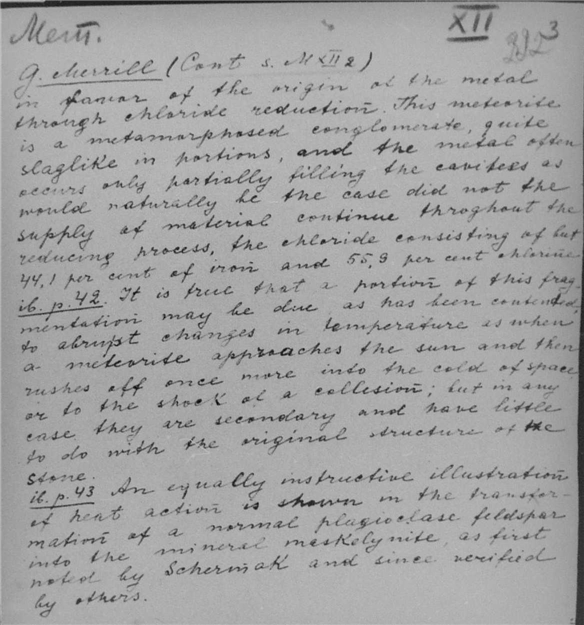 Mem.
XII
3
G. Merrill (Cont s. M XII 2)
in favor of the origin of the metal
through chloride reduction. This meteorite
is a metamorphosed conglomerate, quite
slaglike in portions, and the metal often
occurs only partially filling the cavities as
would naturally be the case did not the
supply of material continue throghout the
reducing process, the chloride consisting of but
44,1 per cent of iron and 55,9 per cent chlorine
ib. p. 42. It is true that a portion of this frag-
mentation may be due as has been contended,
to abrupt changes in temperature as when
a meteorite approaches the sun and then
rushes off once more into the cold of space
or to the shock of a collesion; but in any
case they are secondary and have little
to do with the original structure of the
stone.
ib. p. 43 An equally instructive illustration
of heat action is shown in the transfor-
mation of a normal plagioclase feldspar
into the mineral maskelynite, as first
noted by Schermak and since verified
by others.